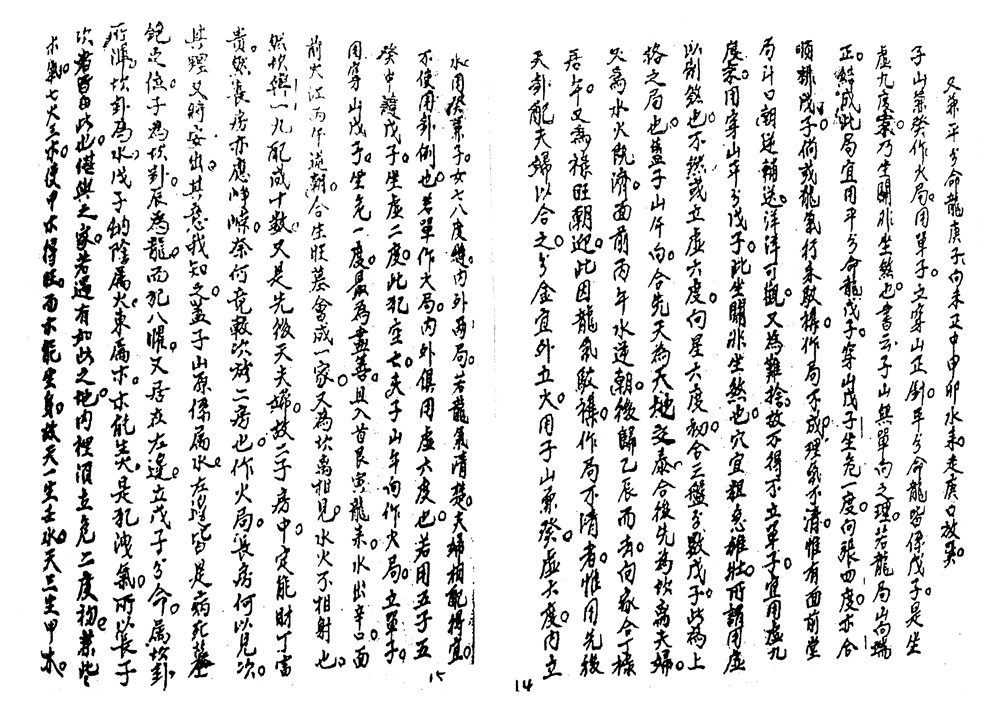 又兼平分命龍庚子向未丑中申卯水未走庚口放哭
子山兼癸作火局用單子立穿山正針平分命龍皆係戊子是坐
虛九度案乃坐關非坐煞也書云子山無單向之理若龍局山向端
正結成此局宜用平分命龍戊子穿山戊子坐危一度向張四度亦合
順排戊子倘或龍氣行來駁襍作局不成理氣不清惟有面前堂
局斗口朝逆輔送洋洋可觀又為難捨故不得不立單子宜用虛九
度案用穿山平分戊子此坐關非坐煞也穴宜粗急雄壯所謂用虛
以制煞也不然或立虛六度向星六度初合三盤分數戊子此為上
格之局也蓋子山午向合先天為天地交泰合後先為坎离夫婦
又為水火既濟面前丙午水逆朝後歸乙辰而去向家合丁祿
居午又為祿旺朝迎此因龍氣駁襍作局不清者惟用先後
天卦配夫婦以合之分金宜外立火用子山兼癸虛六度內立
14
水用癸兼子女七八度縫內外兩局若龍氣清楚夫婦相配得宜
不使用卦例也若單作火局內外俱用虛六度也若用五子五
癸申護戊子坐虛二度此犯空亡夫子山午向作火局立單子
用穿山戊子坐危一度最為盡善且入首艮寅龍來水出辛口面
前火江丙午逆朝合生旺墓會成一家又為坎离相見水火不相射也
然坎與一九配成十數又是先後天夫婦故二子房中定能財丁富
貴然長房亦應崢嶸奈何竟較次於二房也作火局長房何以見次
其理又將安出其意我知之蓋子山原係屬水左邊皆是病死墓
絕之位子為坎卦辰為龍而犯八懼又居在左邊立戊子分命屬坎卦
所渾坎卦為水戊子納除属火東属木木能生火是犯洩氣所以長子
次者皆由此也堪與之家若遇有如此之地內裡須立危二度初葉些些
木氣七火三木使甲木得旺而木能生身故天一生壬水天三生甲木
15